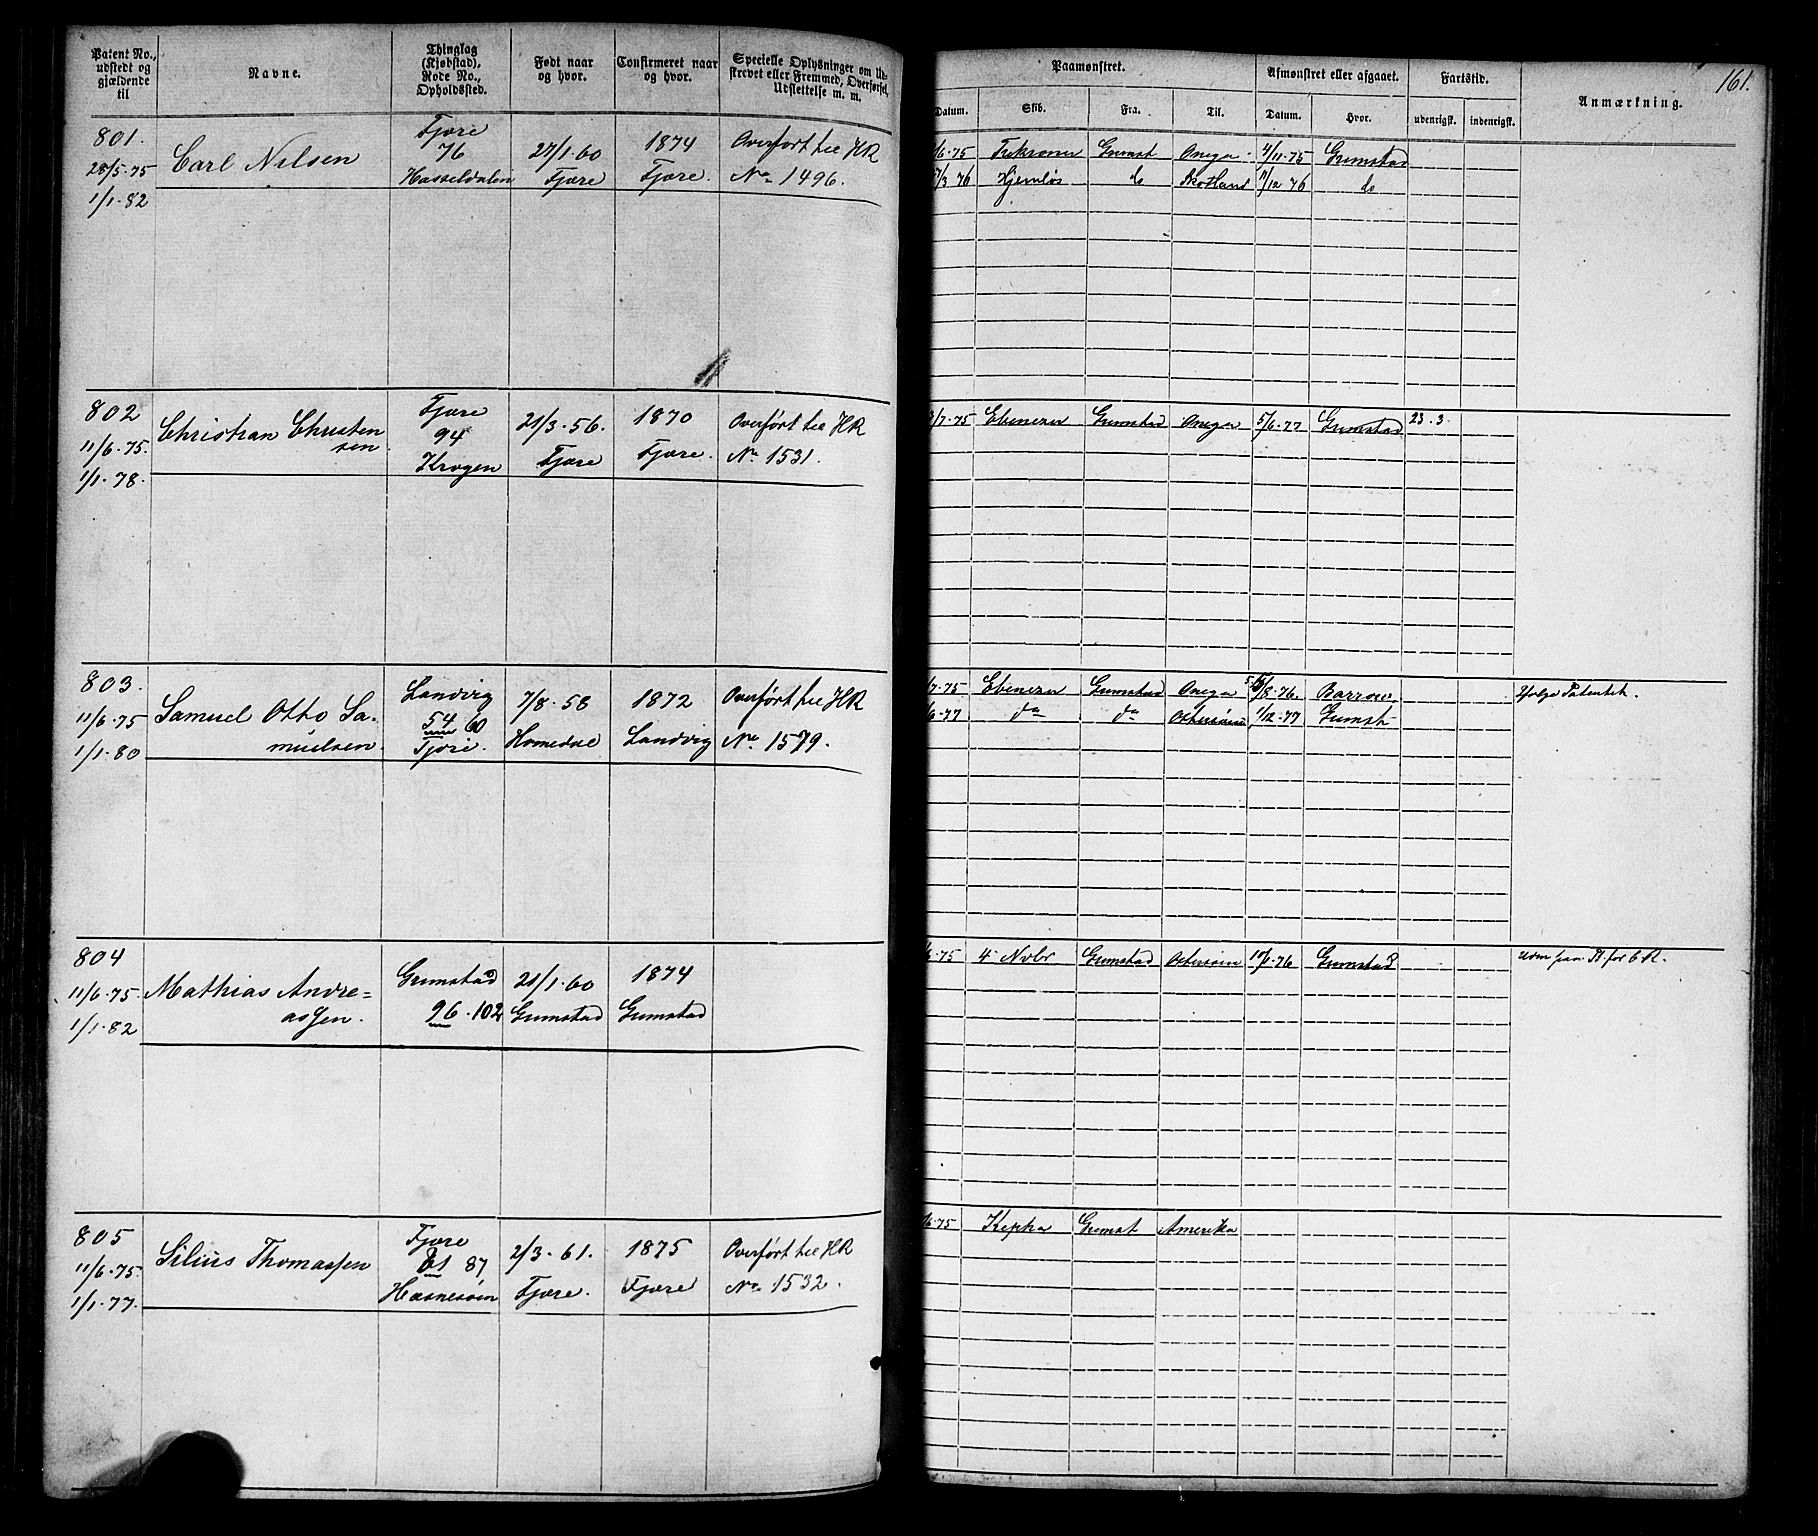 161.
Patent No., udstedt og gjældende til
Navne.
Thinglag (Kjøbstad), Rode No., Opholdssted.
Født naar og hvor.
Confirmeret naar og hvor.
Specielle Oplysninger om Udskrevet eller Fremmed, Overførsel, Udslettelse m. m.
Paamønstret.
Afmønstret eller afgaaet.
Fartstid.
Anmærkning.
Datum.
Skib.
Fra.
Til.
Datum.
Hvor.
udenrigsk.
indenrigsk.
801.
28/5-75
1/1-82
Carl Nilsen
Fjære
76
Hasseldalen
27/1-60
Fjære
1874
Fjære.
Overført til HR
No 1496.
6-75 Trekroner Grimst Onega 4/11-75 Grimstad
/3 76 Hjemløs do Skotland 11/12 76 do
802
11/6-75.
1/1-78.
Christian Christensen
Fjære
94
Krogen
21/3-56.
Fjære
1870
Fjære.
Overført til HR
No 1531.
/7-75 Ebenezer Grimstad Onega 5/6-77 Grimstad 23.3.
803.
11/6-75
1/1-80
Samuel Otto Samuelsen
Landvig
54 60
Fjære.
7/8-58
Homedal
1872
Landvig
Overført til HR
No 1579.
/7-75 Ebenezer Grimstad Onega /8-76 Barrow Ifølge Patentet.
/6-77 do do Østersøen 1/12-77 Grimst
804
11/6-75.
1/1-82
Mathias Andreassen.
Grimstad
96-102
21/1-60
Grimstad
1874
Grimstad
6-75 4 Novbr Grimstad Østersøen 76 Grimstad
805
11/6-75.
1/1-77.
Silius Thomassen
Fjære
87
Hasnesøen
2/3-61.
Fjære.
1875
Fjære
Overført til HR
No 1532.
6-75 Kepha Grimst Amerika